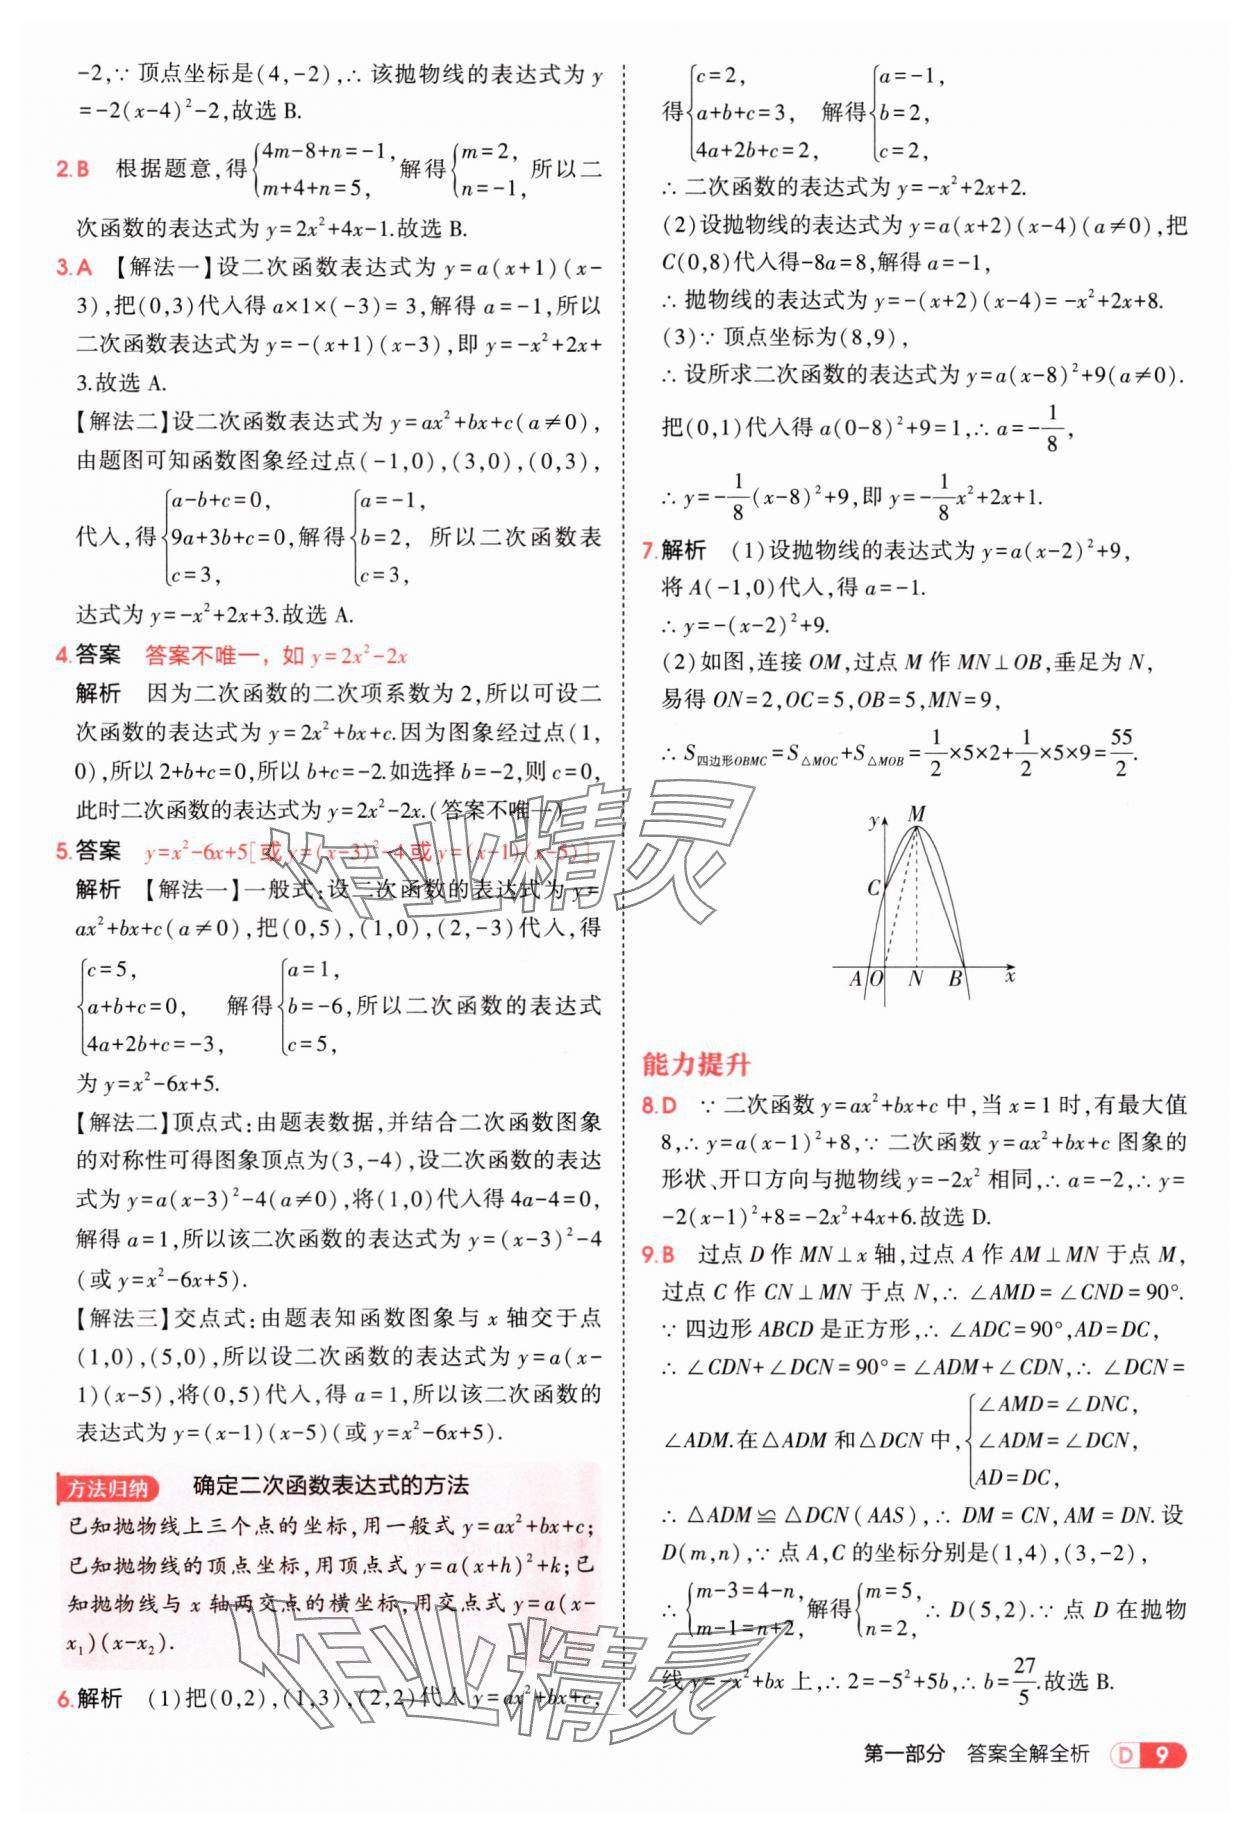 -2,∵ 顶点坐标是(4,-2),∴ 该抛物线的表达式为 y
=-2(x-4)²-2,故选 B.
2.B 根据题意,得{4m-8+n=-1, m+4+n=5, 解得{m=2, n=-1, 所以二
次函数的表达式为 y=2x²+4x-1.故选 B.
3.A 【解法一】设二次函数表达式为 y=a(x+1)(x-
3),把(0,3)代入得 a×1×(-3)=3,解得 a=-1,所以
二次函数表达式为 y=-(x+1)(x-3),即 y=-x²+2x+
3.故选 A.
【解法二】设二次函数表达式为 y=ax²+bx+c(a≠0),
由题图可知函数图象经过点(-1,0),(3,0),(0,3),
代入,得{a-b+c=0, 9a+3b+c=0, c=3, 解得{a=-1, b=2, c=3, 所以二次函数表
达式为 y=-x²+2x+3.故选 A.
4.答案 答案不唯一，如 y=2x²-2x
解析 因为二次函数的二次项系数为 2,所以可设二
次函数的表达式为 y=2x²+bx+c.因为图象经过点(1,
0),所以 2+b+c=0,所以 b+c=-2.如选择 b=-2,则 c=0,
此时二次函数的表达式为 y=2x²-2x.(答案不唯一)
5.答案 y=x²-6x+5[或 y=(x-3)²-4 或 y=(x-1)(x-5)]
解析 【解法一】一般式:设二次函数的表达式为 y=
ax²+bx+c(a≠0),把(0,5),(1,0),(2,-3)代入,得
{c=5, a+b+c=0, 4a+2b+c=-3, 解得{a=1, b=-6, c=5, 所以二次函数的表达式
为 y=x²-6x+5.
【解法二】顶点式:由题表数据,并结合二次函数图象
的对称性可得图象顶点为(3,-4),设二次函数的表达
式为 y=a(x-3)²-4(a≠0),将(1,0)代入得 4a-4=0,
解得 a=1,所以该二次函数的表达式为 y=(x-3)²-4
(或 y=x²-6x+5).
【解法三】交点式:由题表知函数图象与 x 轴交于点
(1,0),(5,0),所以设二次函数的表达式为 y=a(x-
1)(x-5),将(0,5)代入,得 a=1,所以该二次函数的
表达式为 y=(x-1)(x-5)(或 y=x²-6x+5).
方法归纳 确定二次函数表达式的方法
已知抛物线上三个点的坐标,用一般式 y=ax²+bx+c;
已知抛物线的顶点坐标,用顶点式 y=a(x+h)²+k;已
知抛物线与 x 轴两交点的横坐标,用交点式 y=a(x-
x₁)(x-x₂).
6.解析 (1)把(0,2),(1,3),(2,2)代入 y=ax²+bx+c,
得{c=2, a+b+c=3, 4a+2b+c=2, 解得{a=-1, b=2, c=2,
∴ 二次函数的表达式为 y=-x²+2x+2.
(2)设抛物线的表达式为 y=a(x+2)(x-4)(a≠0),把
C(0,8)代入得-8a=8,解得 a=-1,
∴ 抛物线的表达式为 y=-(x+2)(x-4)=-x²+2x+8.
(3)∵ 顶点坐标为(8,9),
∴ 设所求二次函数的表达式为 y=a(x-8)²+9(a≠0).
把(0,1)代入得 a(0-8)²+9=1,∴ a=-1/8,
∴ y=-1/8(x-8)²+9,即 y=-1/8x²+2x+1.
7.解析 (1)设抛物线的表达式为 y=a(x-2)²+9,
将 A(-1,0)代入,得 a=-1.
∴ y=-(x-2)²+9.
(2)如图,连接 OM,过点 M 作 MN⊥OB,垂足为 N,
易得 ON=2,OC=5,OB=5,MN=9,
∴ S四边形OBMC=S△MOC+S△MOB=1/2×5×2+1/2×5×9=55/2.
y M
C
A O N B x
能力提升
8.D ∵ 二次函数 y=ax²+bx+c 中,当 x=1 时,有最大值
8,∴ y=a(x-1)²+8,∵ 二次函数 y=ax²+bx+c 图象的
形状、开口方向与抛物线 y=-2x² 相同,∴ a=-2,∴ y=
-2(x-1)²+8=-2x²+4x+6.故选 D.
9.B 过点 D 作 MN⊥x 轴,过点 A 作 AM⊥MN 于点 M,
过点 C 作 CN⊥MN 于点 N,∴ ∠AMD=∠CND=90°.
∵ 四边形 ABCD 是正方形,∴ ∠ADC=90°,AD=DC,
∴ ∠CDN+∠DCN=90°=∠ADM+∠CDN,∴ ∠DCN=
∠ADM.在△ADM 和△DCN 中,{∠AMD=∠DNC, ∠ADM=∠DCN, AD=DC,
∴ △ADM≌△DCN(AAS),∴ DM=CN,AM=DN.设
D(m,n),∵ 点 A,C 的坐标分别是(1,4),(3,-2),
∴ {m-3=4-n, m-1=n+2, 解得{m=5, n=2, ∴ D(5,2).∵ 点 D 在抛物
线 y=-x²+bx 上,∴ 2=-5²+5b,∴ b=27/5.故选 B.
第一部分 答案全解全析 D 9
作业精灵
作业精灵